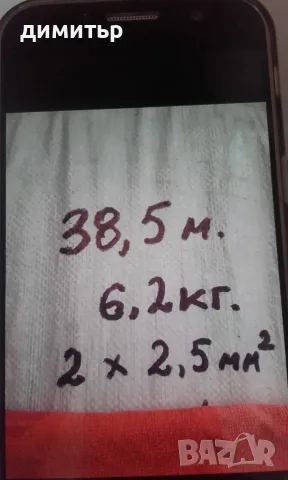 димитър
38,5 м.
6,2 кг.
2 x 2,5 мм²
BAZAR